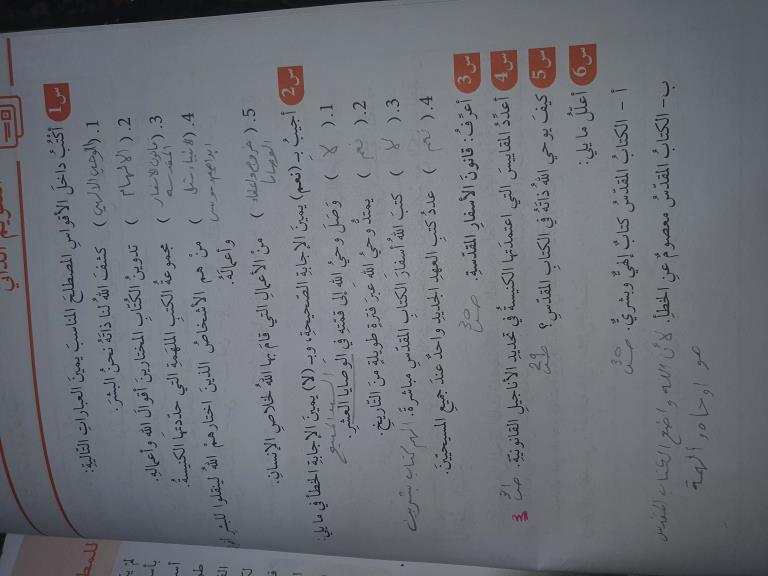 التقويم الذاتي
س1 أكتُبُ داخلَ الأقواسِ المصطلحَ المناسبَ يمينَ العباراتِ التاليةِ:
1. (الوحي الإلهي) كشفَ اللهُ لنا ذاتَهُ نحنُ البشرَ.
2. (الإلهام) تدوينُ الكُتّابِ المختارينَ أقوالَ اللهِ وأعمالَهِ.
3. (قانون الأسفار المقدسة) مجموعةُ الكتبِ الملهَمةِ التي حدّدَتها الكنيسةُ.
4. (الأنبياء مثل ابراهيم موسى) مَنْ هم الأشخاصُ الذينَ اختارهمُ اللهُ لينقلوا للبشرِ
وأعمالَهُ.
5. (خروج الوصايا) منَ الأعمالِ التي قامَ بها اللهُ لخلاصِ الإنسانِ.
س2 أُجيبُ بِـ (نعم) يمينَ الإجابةِ الصّحيحةِ، وبـ (لا) يمينَ الإجابةِ الخطأِ في ما يلي:
1. (لا) وَصَلَ وحيُ اللهِ إلى قمّتِه في الوصايا العَشْرِ. السيد المسيح
2. (نعم) يمتدُّ وحيُ اللهِ عبرَ فترةٍ طويلةٍ منَ التّاريخِ.
3. (لا) كتبَ اللهُ أسفارَ الكتابِ المقدّسِ مباشرةً. الهم كتاب بشريين
4. (نعم) عددُ كتبِ العهدِ الجديدِ واحدٌ عندَ جميعِ المسيحيّينَ.
س3 أُعرِّفُ: قانونَ الأسفارِ المقدّسةِ. ص 30
س4 أُعدِّدُ المقاييسَ التي اعتمدَتها الكنيسةُ في تحديدِ الأناجيلِ القانونيّةِ. ص 31
س5 كيفَ يوحي اللهُ ذاتَهُ في الكتابِ المقدّسِ؟ ص 29
س6 أُعلِّلُ ما يلي:
أ - الكتابُ المقدّسُ كتابٌ إلهيٌّ وبشريٌّ. ص 30
ب- الكتابُ المقدّسُ معصومٌ عنِ الخطأِ. لأن الله واضع الكتاب المقدس
هو أوحاه وألهمه